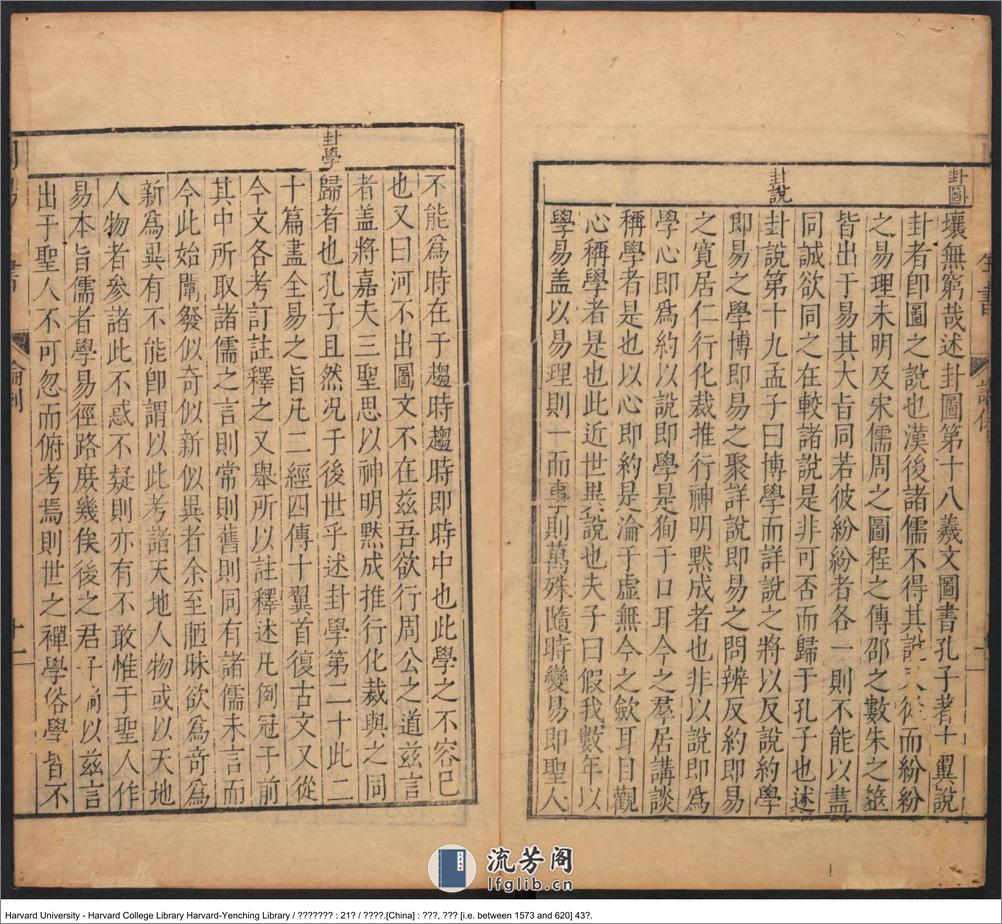 卦圖
卦說
壤無窮哉述卦圖第十八羲文圖書孔子著十翼說
卦者卽圖之說也漢後諸儒不得其說
而紛紛
之易理未明及宋儒周之圖程之傳邵之數朱之筮
皆出于易其大旨同若彼紛紛者各一則不能以盡
同誠欲同之在較諸說是非可否而歸于孔子也述
卦說第十九孟子曰博學而詳說之將以反說約學
卽易之學博卽易之聚詳說卽易之問辨反約卽易
之寬居仁行化裁推行神明默成者也非以說卽爲
學心卽爲約以說卽學是狥于口耳今之羣居講談
稱學者是也以心卽約是淪于虛無今之歛耳目觀
心稱學者是也此近世異說也夫子曰假我數年以
學易盖以易理則一而事則萬殊隨時變易卽聖人
卦學
不能爲時在于趨時趨時卽時中也此學之不容已
也又曰河不出圖文不在茲吾欲行周公之道茲言
者盖將嘉夫三聖思以神明默成推行化裁與之同
歸者也孔子且然况于後世乎述卦學第二十此二
十篇盡全易之旨凡二經四傳十翼首復古文又從
今文各考訂註釋之又舉所以註釋述凡例冠于前
其中所取諸儒之言則常則舊則同有諸儒未言而
今此始闡發似奇似新似異者余至陋昧欲爲奇爲
新爲異有不能卽謂以此考諸天地人物或以天地
人物者參諸此不惑不疑則亦有不敢惟于聖人作
易本旨儒者學易徑路庻幾俟後之君子倘以茲言
出于聖人不可忽而俯考焉則世之禪學俗學皆不
論例
流芳阁
lfglib.cn
Harvard University - Harvard College Library Harvard-Yenching Library / ??????? : 21? / ????.[China] : ???, ??? [i.e. between 1573 and 620] 43?.